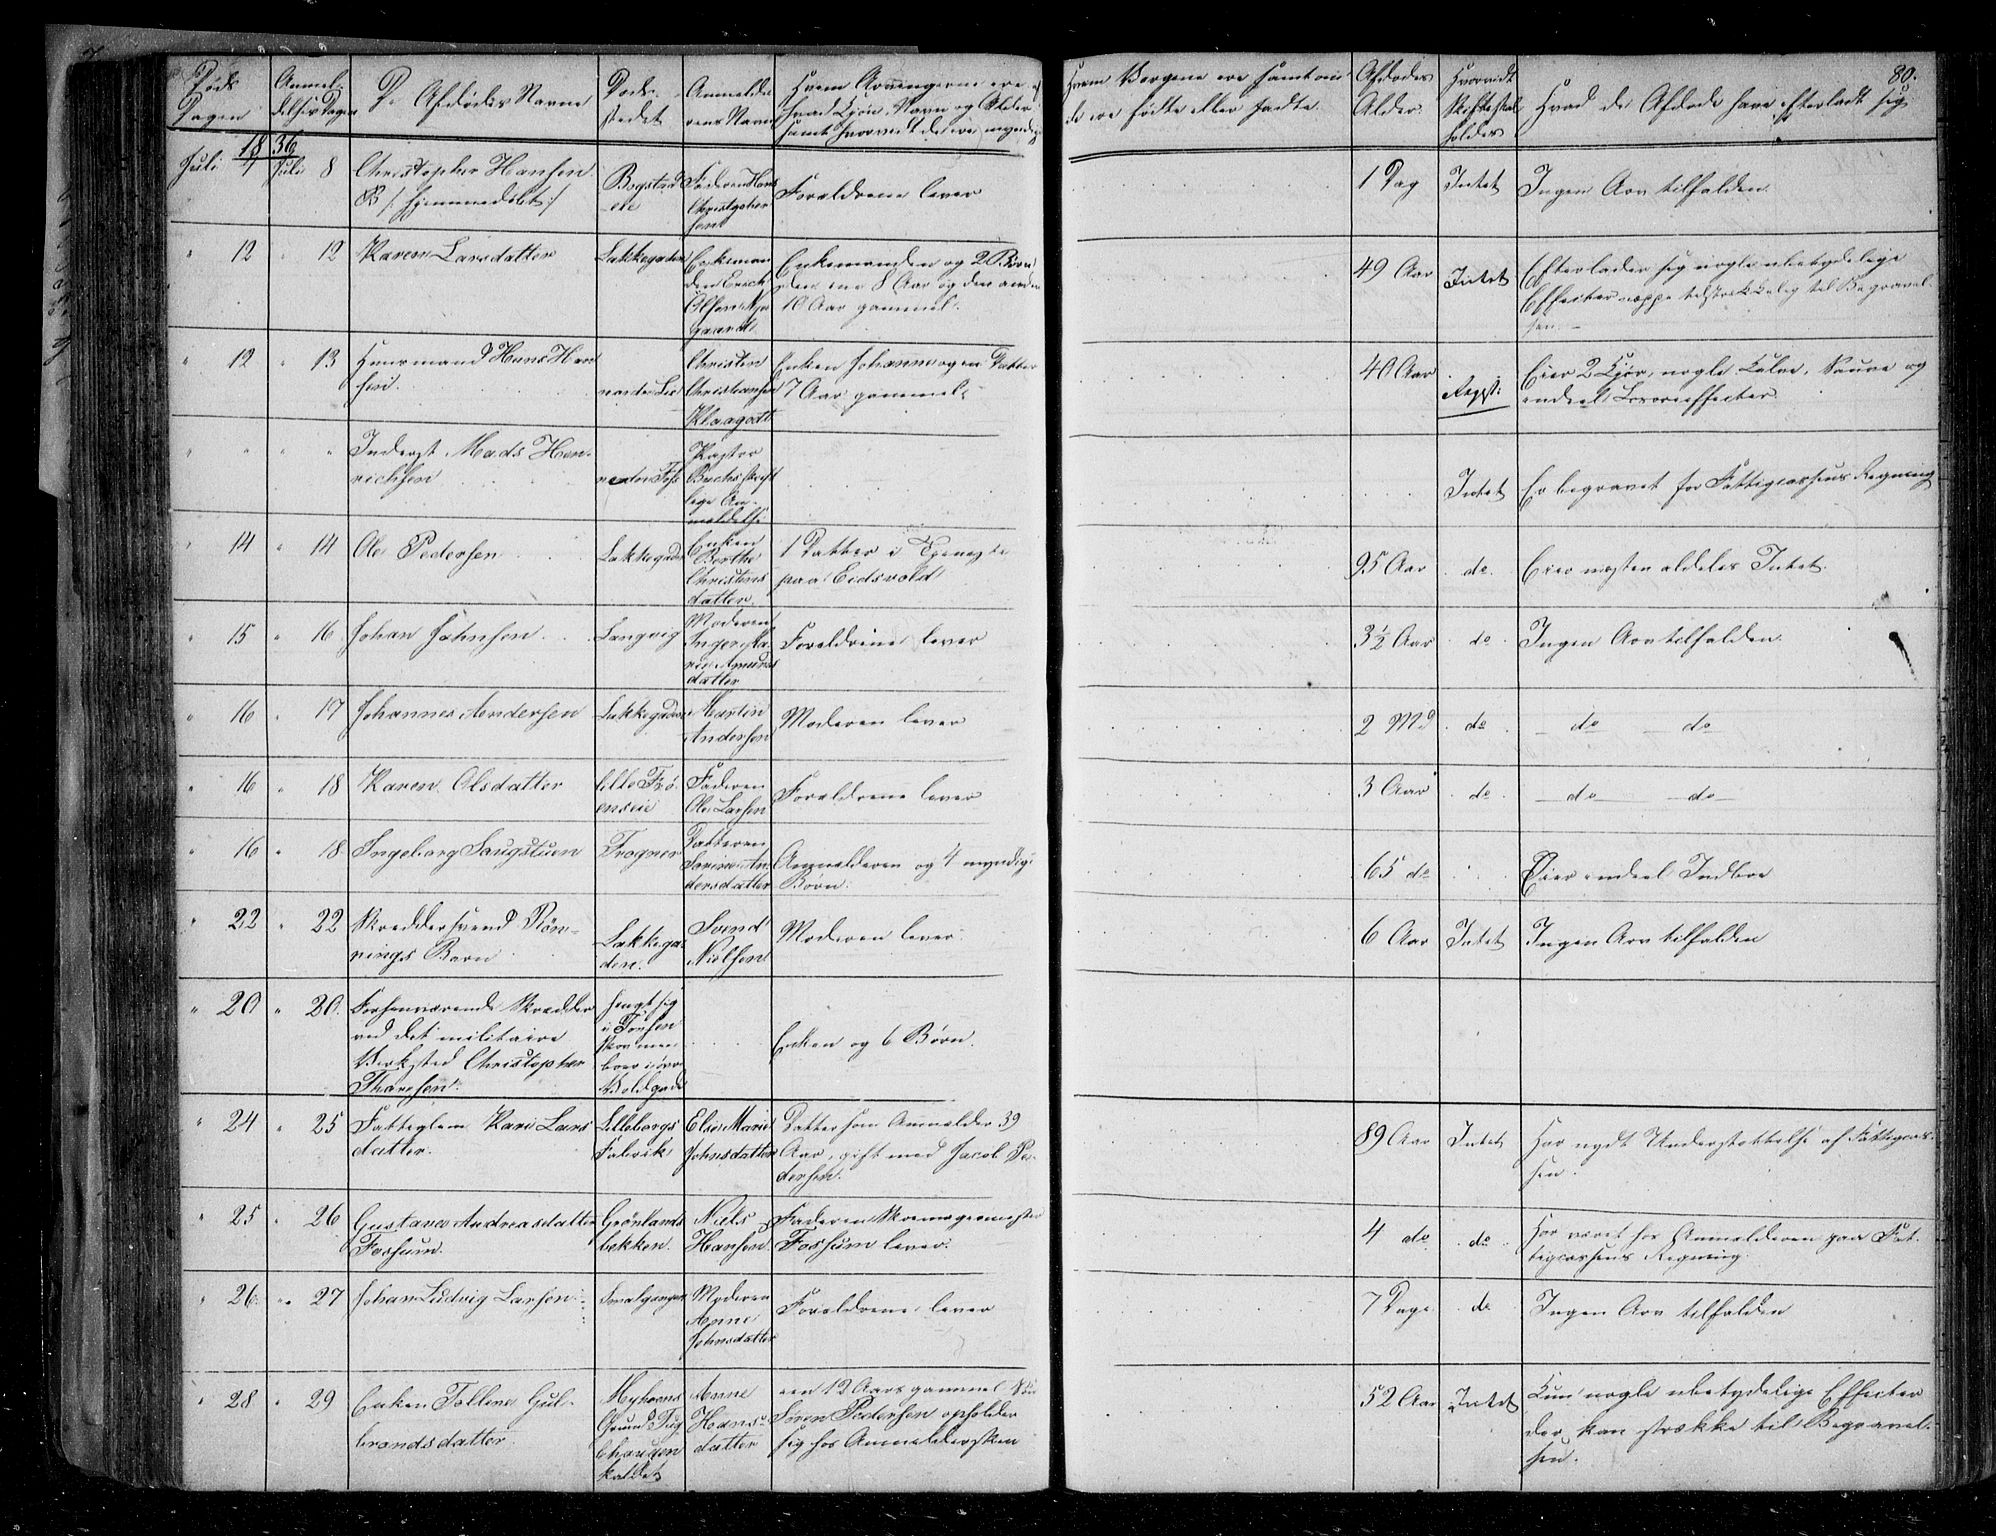 80.
Døds Dagen
Anmeldelses Dagen
De Afdødes Navne
Døds-stedet
Anmelderens Navn
Hvem Arvingerne ere af
hvad Kjøn, Navn og Alder
samt hvorvidt de ere myndige
Hvem Værgene ere samt om
de ere fødte eller satte.
Afdødes Alder.
Hvorvidt Skifte skal holdes
Hvad de Afdøde have efterladt sig
1836
Juli 7 Juli 8 Christopher Hansen
(Hjemmedøbt)
Bogstad eie
Faderen Hans Christophersen
Forældrene lever
1 Dag Intet Ingen Arv tilfalden
" 12 " 12 Karen Larsdatter
Lakkegaden
Enkemanden Erick Olsen
Enkemanden og 2 Børn
den ene 8 Aar og den anden
10 Aar gammel.
49 Aar Intet Efterlader sig nogle ubetydelige
Effecter neppe tilstrekkelig til Begravelsen.
" 12 " 13 Huusmand Hans Hansen
Christen Christiansen
Enken Johanne og en Datter
7 Aar gammel.
40 Aar Regst: Eier 2 Kjør, nogle Kalve, Sauer og
endeel Løsøreeffecter
" " " " Inderst Mads Henrichsen
Pastor Buchs skriftlige Anmeldelse
Intet Er begravet for Fattigcassens Regning
" 14 " 14 Ole Pedersen
Lakkegaden
Enken Berthe Christensdatter.
1 Datter i Tjeneste
paa Eidsvold
95 Aar do. Eier næsten aldeles Intet.
" 15 " 16 Johan Johnsen
Langvig
Moderen Inger Marie Amundsdatter
Forældrene lever
3½ Aar do Ingen Arv tilfalden.
" 16 " 17 Johannes Andersen
Lakkegaden
Martin Andersen
Moderen lever
2 Md do do do
" 16 " 18 Karen Olsdatter
lille Frøenseie
Faderen Ole Larsen
Forældrene lever
3 Aar do do do
" 16 " 18 Ingeborg Saugstuen
Frogner
Datteren Sorine Andersdatter
Anmelderen og 4 myndige
Børn.
65 do Eier endeel Indboe
" 22 " 22 Skreddersvend Rønnings Barn
Lakkegaden.
Svend Nielsen
Moderen lever.
6 Aar Intet Ingen Arv tilfalden
" 20 " 20. Forhenværende Skredder
ved det militaire
Verksted Christopher
Thoresen.
hengt sig i
skov men
boer i øvre
Voldgade
Enken og 6 Børn.
" 24 " 25 Fattiglem Kari Larsdatter.
Lilleborgs Fabrik
Elise Marie Johnsdatter
Datter som Anmelder 39
Aar, gift med Jacob Pedersen.
89 Aar Intet Har nydt Understøttelse af Fattigcassen.
" 25 " 26 Gustava Andreasdatter
Fossum.
Grønlands bekken.
Niels Hansen
Faderen Skomagermester
Fossum lever.
4 do do Har været hos Anmelderen paa Fattigcassens Regning.
" 26 " 27 Johan Ludvig Larsen
Smalgangen
Moderen Anne Johnsdatter
Forældrene lever
7 Dage do Ingen Arv tilfalden
" 28 " 29 Enken Tolline Gulbrandsdatter
Myhrens Grund
kaldet
Anne Hansdatter
een 12 Aars gammel Søn
Søren Pedersen opholder
sig hos Anmeldersken
52 Aar Intet Kun nogle ubetydelige Effecter
der kan strække til Begravelsen.